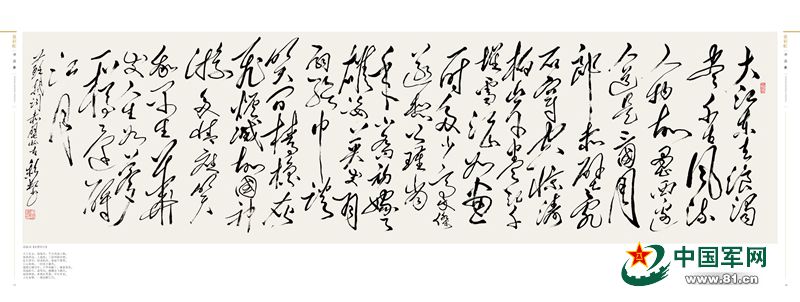 大江东去浪淘
尽千古风流
人物故垒西边
人道是三国周
郎赤壁乱
石穿空惊涛
拍岸卷起千
堆雪江山如画
一时多少豪杰
遥想公瑾当
年小乔初嫁了
雄姿英发羽
扇纶巾谈
笑间樯橹灰
飞烟灭故国神
游多情应笑
我早生华发
人生如梦
一樽还酹
江月
苏轼词赤壁怀古
中国军网
www.81.cn